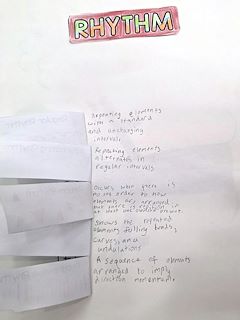 RHYTHM
Repeating elements
with a standard
and unchanging
intervals.
Repeating elements
alternate in
regular intervals
Occurs when there is
no order to how
elements are arranged
but there is
at least one
Shows the repeated
elements following bends,
curves, and
undulations
A sequence of elements
arranged to imply
direction momentum.